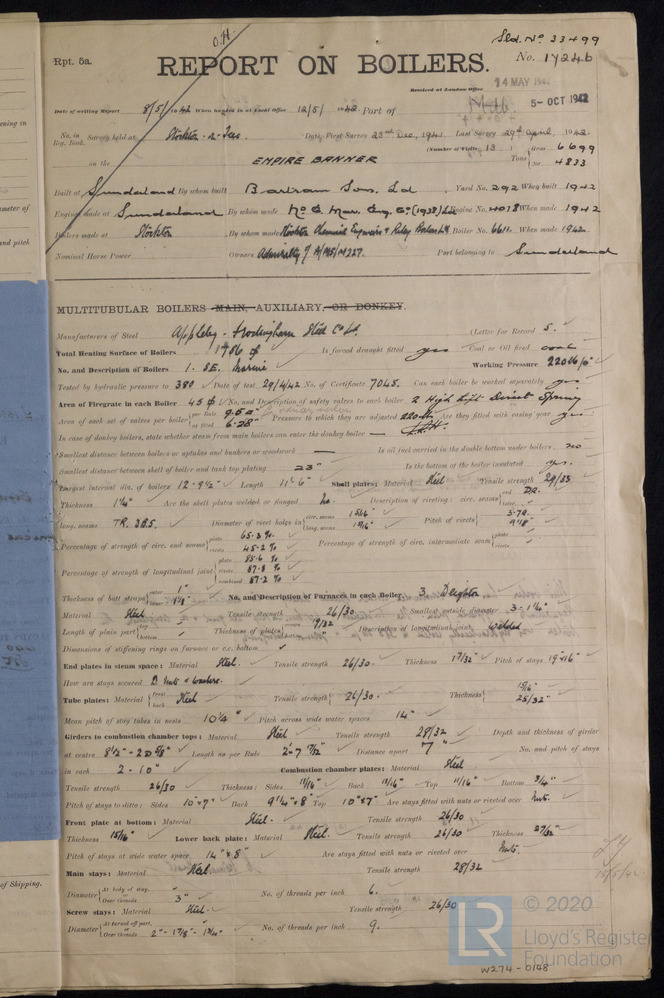 O.H. Sld. No 33499
Rpt. 5a. REPORT ON BOILERS. No. 17246
Received at London Office 14 MAY 1942
Date of writing Report 8/5/1942 When handed in at Local Office 12/5/1942 Port of 5-OCT 1942
No. in Reg. Book. Survey held at Stockton-n-Tees Date, First Survey 23rd Dec, 1941 Last Survey 29th April, 1942
(Number of Visits 13)
on the EMPIRE BANNER Tons Gross 6699 Net 4833
Built at Sunderland By whom built Bartram Sons. Ld Yard No. 292 When built 1942
Engines made at Sunderland By whom made N. E. Mar. Eng. Co (1938) Ld Engine No. 4018 When made 1942
Boilers made at Stockton By whom made Stockton Chemical Engineers & Riley Boilers Ld Boiler No. 6611 When made 1942
Nominal Horse Power Owners Admiralty Port belonging to Sunderland
MULTITUBULAR BOILERS MAIN, AUXILIARY, OR DONKEY.
Manufacturers of Steel Appleby-Frodingham Steel Co Ld (Letter for Record S.
Total Heating Surface of Boilers 1986 Is forced draught fitted yes Coal or Oil fired coal
No. and Description of Boilers 1. SE. Marine Working Pressure 220
Tested by hydraulic pressure to 380 Date of test 29/4/42 No. of Certificate 7045. Can each boiler be worked separately yes
Area of Firegrate in each Boiler 45 No. and Description of safety valves to each boiler 2 High Lift Direct Spring
Area of each set of valves per boiler per Rule as fitted 6.28" Pressure to which they are adjusted 220 Are they fitted with easing gear yes
In case of donkey boilers, state whether steam from main boilers can enter the donkey boiler —
Smallest distance between boilers or uptakes and bunkers or woodwork — Is oil fuel carried in the double bottom under boilers no
Smallest distance between shell of boiler and tank top plating 23" Is the bottom of the boiler insulated yes.
Largest internal dia. of boilers 12-9½" Length 11'-6" Shell plates: Material Steel Tensile strength 29/33
Thickness 1¼" Are the shell plates welded or flanged No. Description of riveting: circ. seams end DR.
long. seams TR. DBS. Diameter of rivet holes in circ. seams long. seams Pitch of rivets
Percentage of strength of circ. end seams plate 65.3% rivets 45.2% Percentage of strength of circ. intermediate seam plate rivets
Percentage of strength of longitudinal joint plate 85.6% rivets 87.8% combined 87.2%
Thickness of butt straps outer 1" inner 1⅛" No. and Description of Furnaces in each Boiler 3 Deighton
Material Steel Tensile strength 26/30 Smallest outside diameter 3'-1¼"
Length of plain part top bottom Thickness of plates 19/32 Description of longitudinal joint Welded
Dimensions of stiffening rings on furnace or c.c. bottom
End plates in steam space: Material Steel. Tensile strength 26/30. Thickness 1 7/32" Pitch of stays 19"×16"
How are stays secured D. Nuts & Washers.
Tube plates: Material front back Steel Tensile strength 26/30. Thickness 15/16" 25/32"
Mean pitch of stay tubes in nests 10¼" Pitch across wide water spaces 14"
Girders to combustion chamber tops: Material Steel Tensile strength 28/32 Depth and thickness of girder
at centre 8½" - 2@⅝" Length as per Rule 2'-7 7/32" Distance apart 7" No. and pitch of stays
in each 2 - 10" Combustion chamber plates: Material Steel
Tensile strength 26/30 Thickness: Sides 11/16" Back 11/16" Top 11/16" Bottom ¾"
Pitch of stays to ditto: Sides 10"×7" Back 9¼"×8 Top 10"×7" Are stays fitted with nuts or riveted over Nuts.
Front plate at bottom: Material Steel. Tensile strength 26/30
Thickness 15/16" Lower back plate: Material Steel. Tensile strength 26/30 Thickness 27/32"
Pitch of stays at wide water space 14"×8" Are stays fitted with nuts or riveted over Nuts.
Main stays: Material Steel Tensile strength 28/32
Diameter At body of stay, Over threads 3" No. of threads per inch 6.
Screw stays: Material Steel. Tensile strength 26/30
Diameter At turned off part, Over threads 2" - 1⅞" - 1¾" No. of threads per inch 9.
of Shipping.
LR © 2020
Lloyd's Register
Foundation
W274-0148